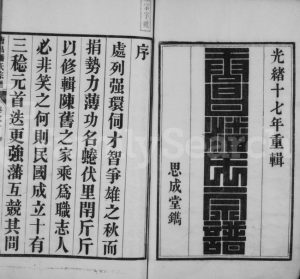 光緒十七年重輯
思成堂鐫
序
處列强環伺才智爭雄之秋而
捐勢力薄功名蜷伏里閈斤斤
以修輯陳舊之家乘爲職志人
必非笑之何則民國成立十有
三稔元首迭更强藩互競其間